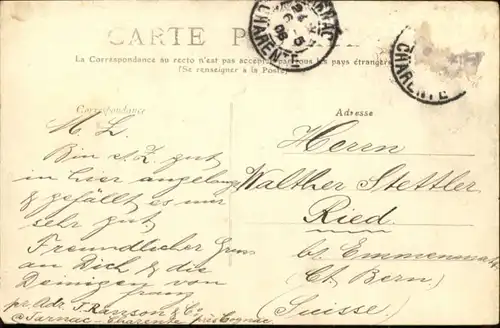 CARTE
La Correspondance au recto n'est pas acceptée par tous les pays étrangers
(Se renseigner à la Poste)
CHARENTE
CHARENTE
Correspondance
Adresse
M. L.
Bin s. Z. gut
in hier angelangt
& gefällt es mir
sehr gut.
Freundlicher Gruss
an Dich & die
Deinigen von
Franz
pr. Adr. J. Ranson & Co
Jarnac - Charente près Cognac
Herrn
Walther Stettler
Ried.
bei Emmenmatt
(Ct. Bern)
(Suisse)